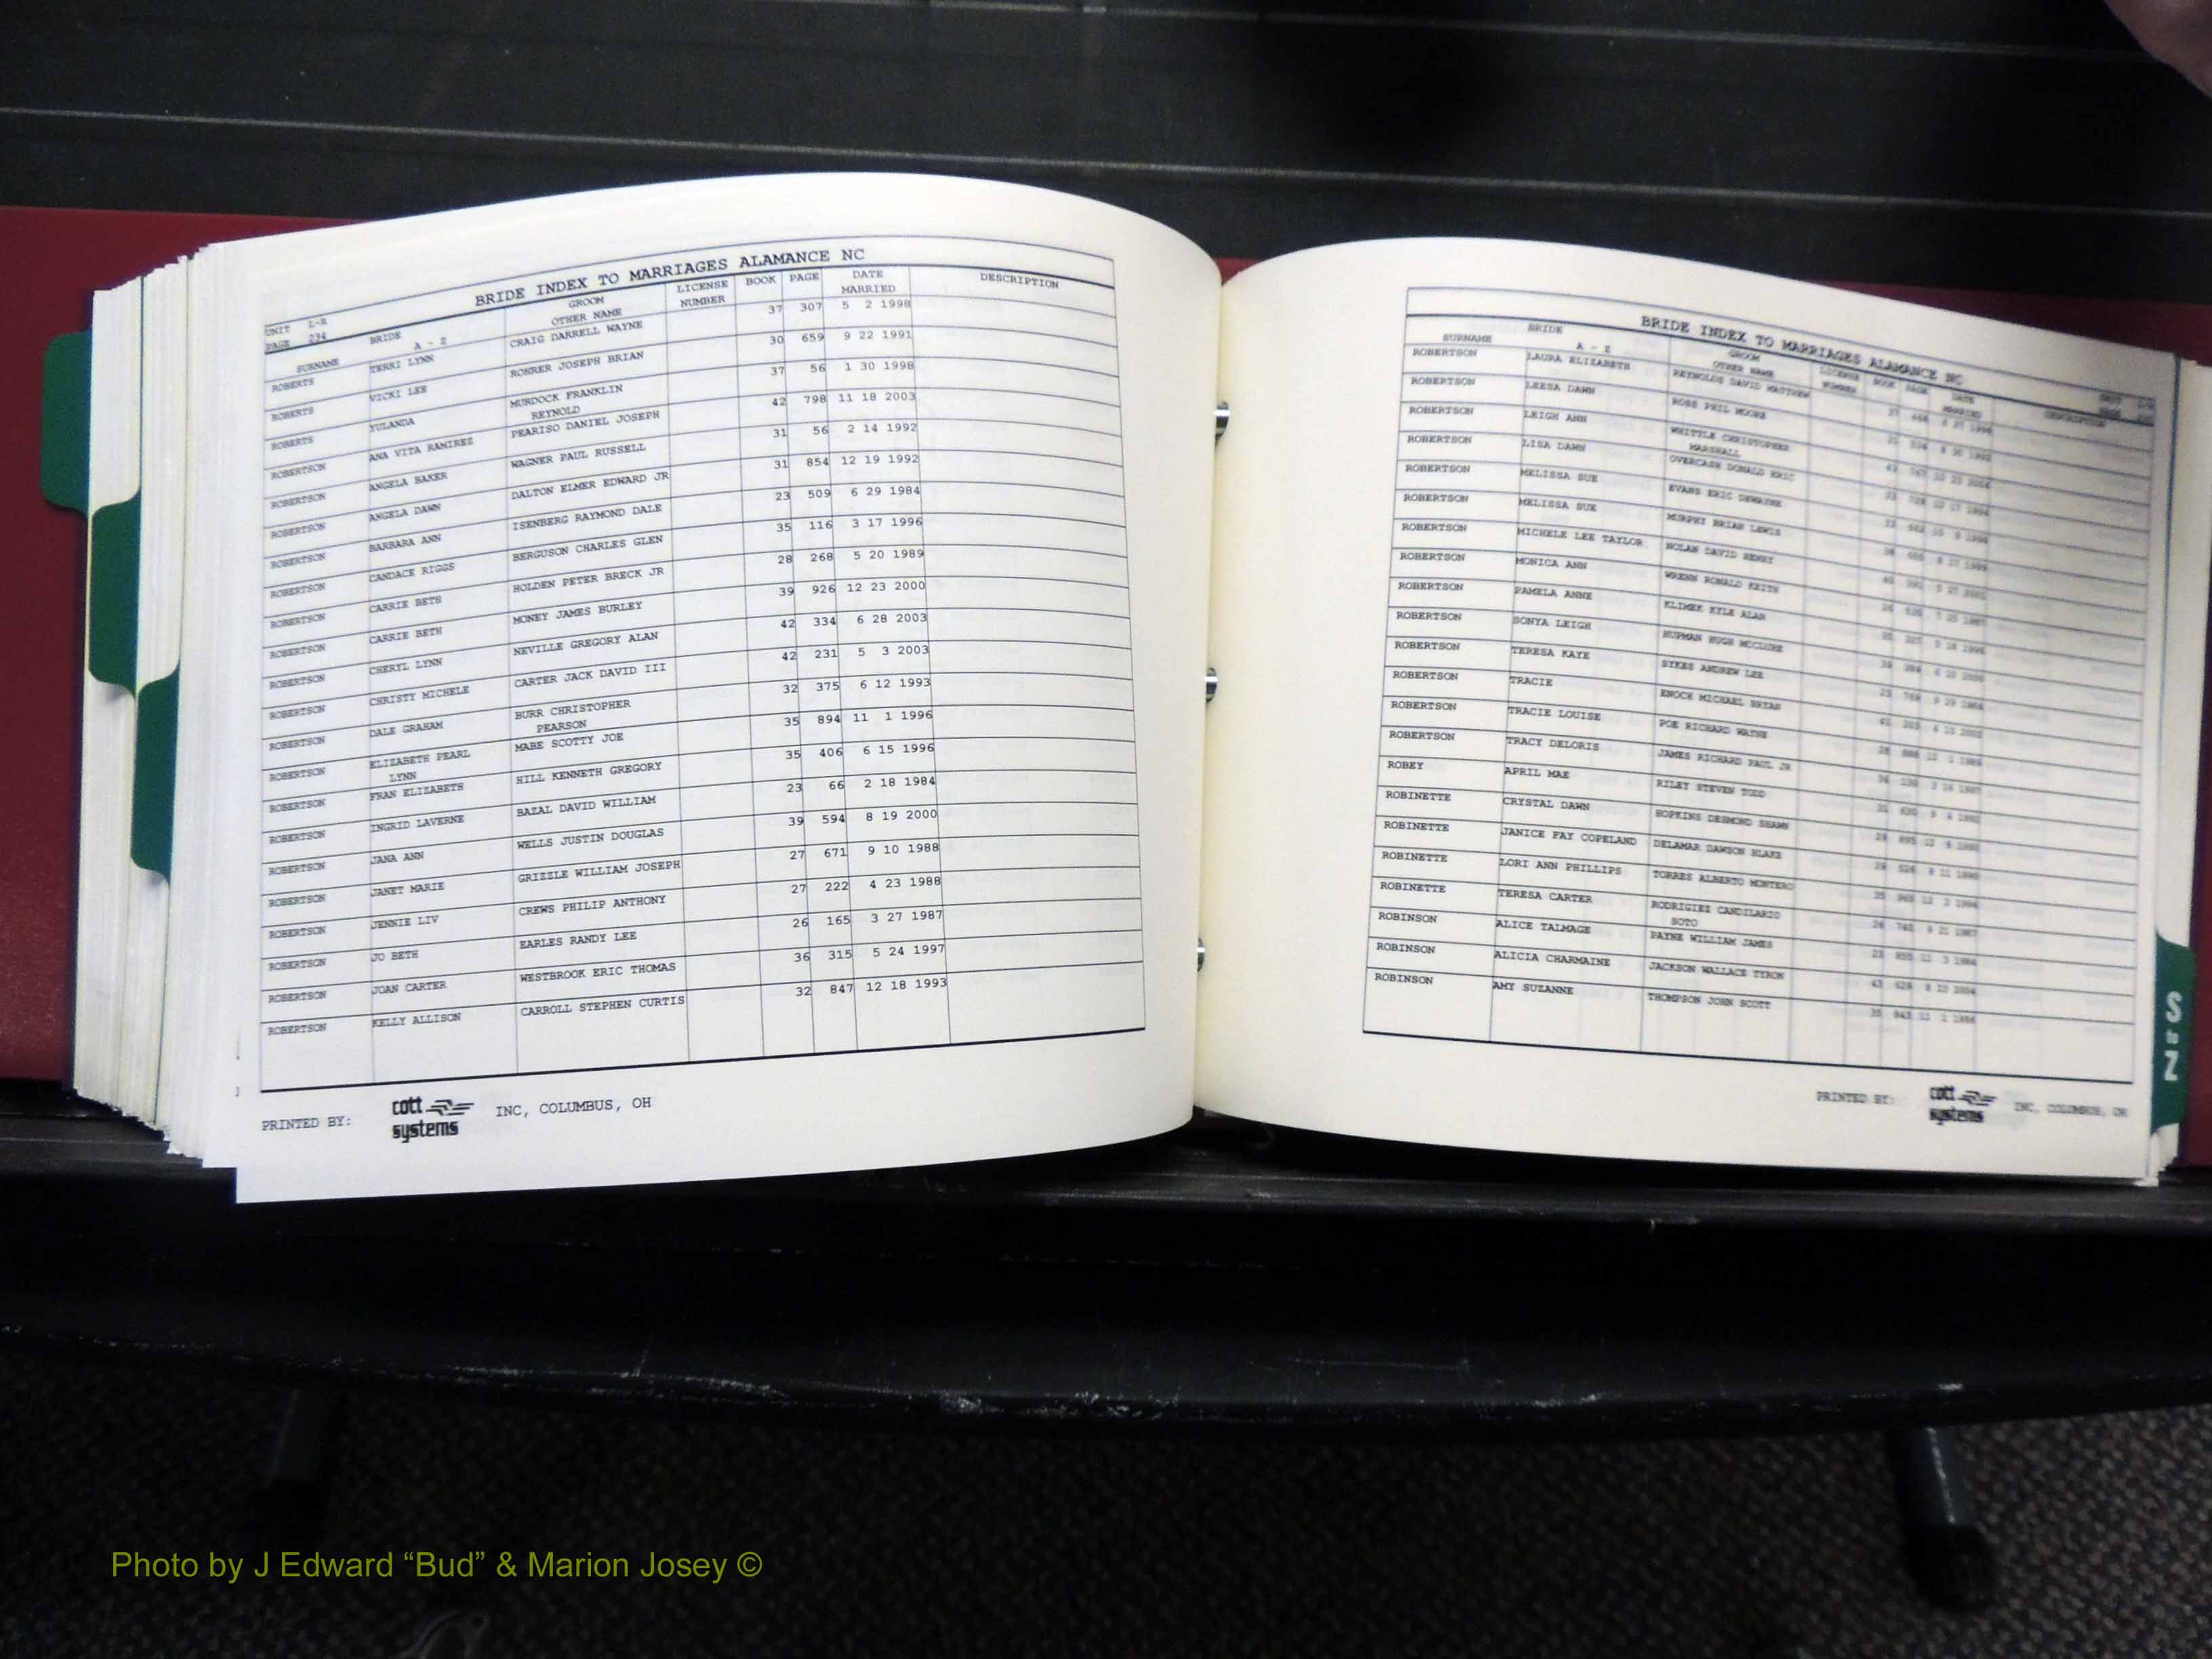 BRIDE INDEX TO MARRIAGES ALAMANCE NC
UNIT L-R
PAGE 234
SURNAME BRIDE A - Z GROOM OTHER NAME LICENSE NUMBER BOOK PAGE DATE MARRIED DESCRIPTION
ROBERTS TERRI LYNN CRAIG DARRELL WAYNE 37 307 5 2 1998
ROBERTS VICKI LEE ROHRER JOSEPH BRIAN 30 659 9 22 1991
ROBERTS YULANDA MURDOCK FRANKLIN REYNOLD 37 56 1 30 1998
ROBERTSON ANA VITA RAMIREZ PEARISO DANIEL JOSEPH 42 798 11 18 2003
ROBERTSON ANGELA BAKER WAGNER PAUL RUSSELL 31 56 2 14 1992
ROBERTSON ANGELA DAWN DALTON ELMER EDWARD JR 31 854 12 19 1992
ROBERTSON BARBARA ANN ISENBERG RAYMOND DALE 23 509 6 29 1984
ROBERTSON CANDACE RIGGS BERGUSON CHARLES GLEN 35 116 3 17 1996
ROBERTSON CARRIE BETH HOLDEN PETER BRECK JR 28 268 5 20 1989
ROBERTSON CARRIE BETH MONEY JAMES BURLEY 39 926 12 23 2000
ROBERTSON CHERYL LYNN NEVILLE GREGORY ALAN 42 334 6 28 2003
ROBERTSON CHRISTY MICHELE CARTER JACK DAVID III 42 231 5 3 2003
ROBERTSON DALE GRAHAM BURR CHRISTOPHER PEARSON 32 375 6 12 1993
ROBERTSON ELIZABETH PEARL LYNN MABE SCOTTY JOE 35 894 11 1 1996
ROBERTSON FRAN ELIZABETH HILL KENNETH GREGORY 35 406 6 15 1996
ROBERTSON INGRID LAVERNE BAZAL DAVID WILLIAM 23 66 2 18 1984
ROBERTSON JANA ANN WELLS JUSTIN DOUGLAS 39 594 8 19 2000
ROBERTSON JANET MARIE GRIZZLE WILLIAM JOSEPH 27 671 9 10 1988
ROBERTSON JENNIE LIV CREWS PHILIP ANTHONY 27 222 4 23 1988
ROBERTSON JO BETH EARLES RANDY LEE 26 165 3 27 1987
ROBERTSON JOAN CARTER WESTBROOK ERIC THOMAS 36 315 5 24 1997
ROBERTSON KELLY ALLISON CARROLL STEPHEN CURTIS 32 847 12 18 1993
PRINTED BY: cott systems INC, COLUMBUS, OH
BRIDE INDEX TO MARRIAGES ALAMANCE NC
SURNAME BRIDE A - Z GROOM OTHER NAME LICENSE NUMBER BOOK PAGE DATE MARRIED DESCRIPTION
ROBERTSON LAURA ELIZABETH REYNOLDS DAVID MATTHEW
ROBERTSON LEESA DAWN ROSS PHIL MOORE
ROBERTSON LEIGH ANN WHITTLE CHRISTOPHER MARSHALL
ROBERTSON LISA DAWN OVERCASH DONALD ERIC
ROBERTSON MELISSA SUE EVANS ERIC DEWAYNE
ROBERTSON MELISSA SUE MURPHY BRIAN LEWIS
ROBERTSON MICHELE LEE TAYLOR NOLAN DAVID HENRI
ROBERTSON MONICA ANN WRENN RONALD KEITH
ROBERTSON PAMELA ANNE KLIMEK KYLE ALAN
ROBERTSON SONYA LEIGH HUPMAN HUGH MCCLURE
ROBERTSON TERESA KAYE SYKES ANDREW LEE
ROBERTSON TRACIE ENOCH MICHAEL BRYAN
ROBERTSON TRACIE LOUISE POE RICHARD WAYNE
ROBERTSON TRACY DELORIS JAMES RICHARD PAUL JR
ROBEY APRIL MAE RILEY STEVEN TODD
ROBINETTE CRYSTAL DAWN HOPKINS DESMOND SHAWN
ROBINETTE JANICE FAY COPELAND DELAMAR DAWSON BLAKE
ROBINETTE LORI ANN PHILLIPS TORRES ALBERTO MONTERO
ROBINETTE TERESA CARTER RODRIGIEZ CANDILARIO SOTO
ROBINSON ALICE TALMAGE PAYNE WILLIAM JAMES
ROBINSON ALICIA CHARMAINE JACKSON WALLACE TYRON
ROBINSON AMY SUZANNE THOMPSON JOHN SCOTT
PRINTED BY: cott systems INC, COLUMBUS, OH
S to Z
Photo by J Edward “Bud” & Marion Josey ©